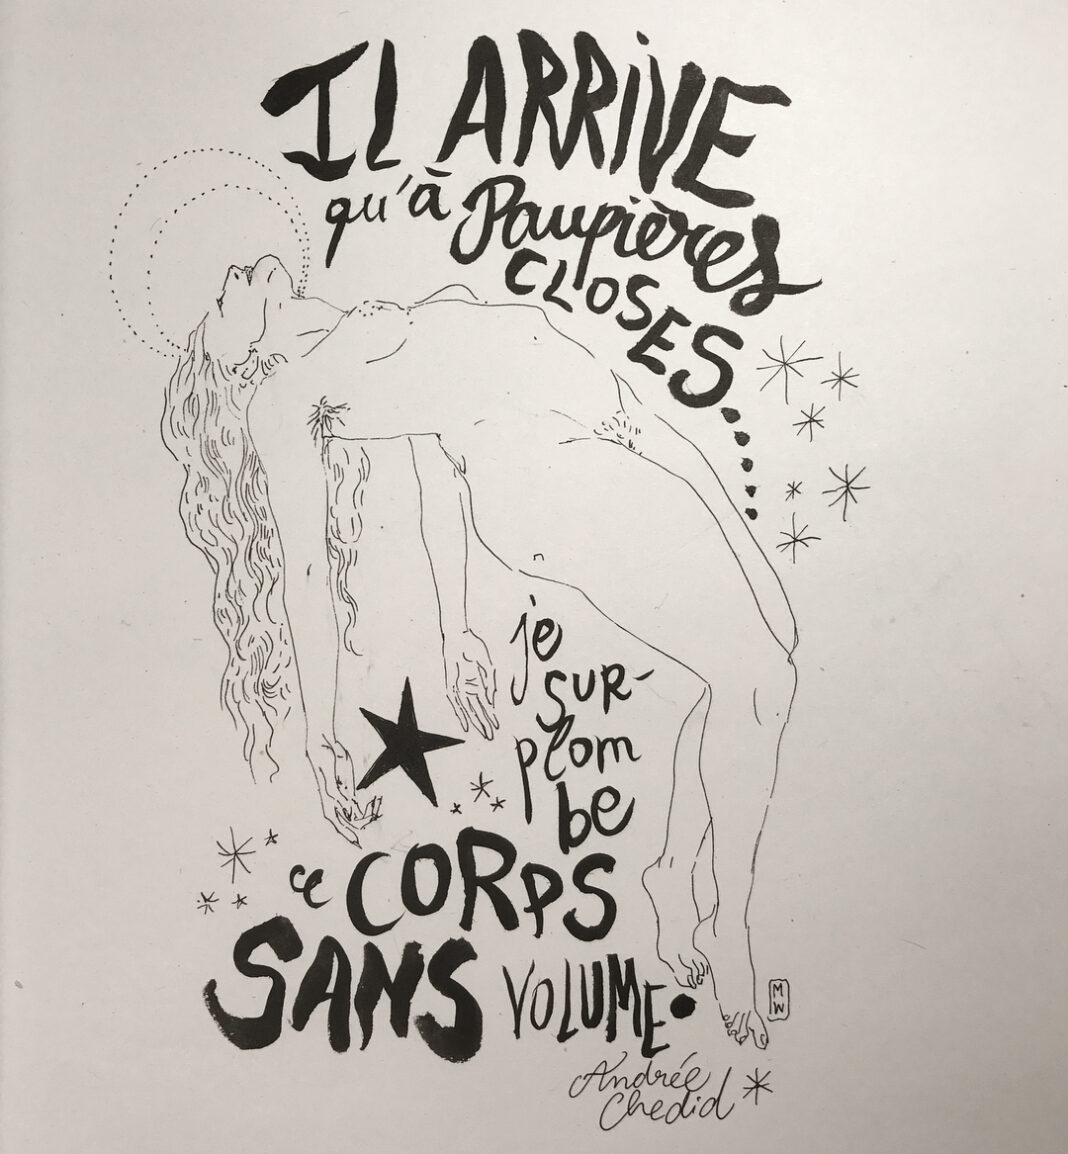 IL ARRIVE
qu'à Paupières
CLOSES.....
je
SUR-
plom
be
ce CORPS
SANS VOLUME.
MW
Andrée
Chedid